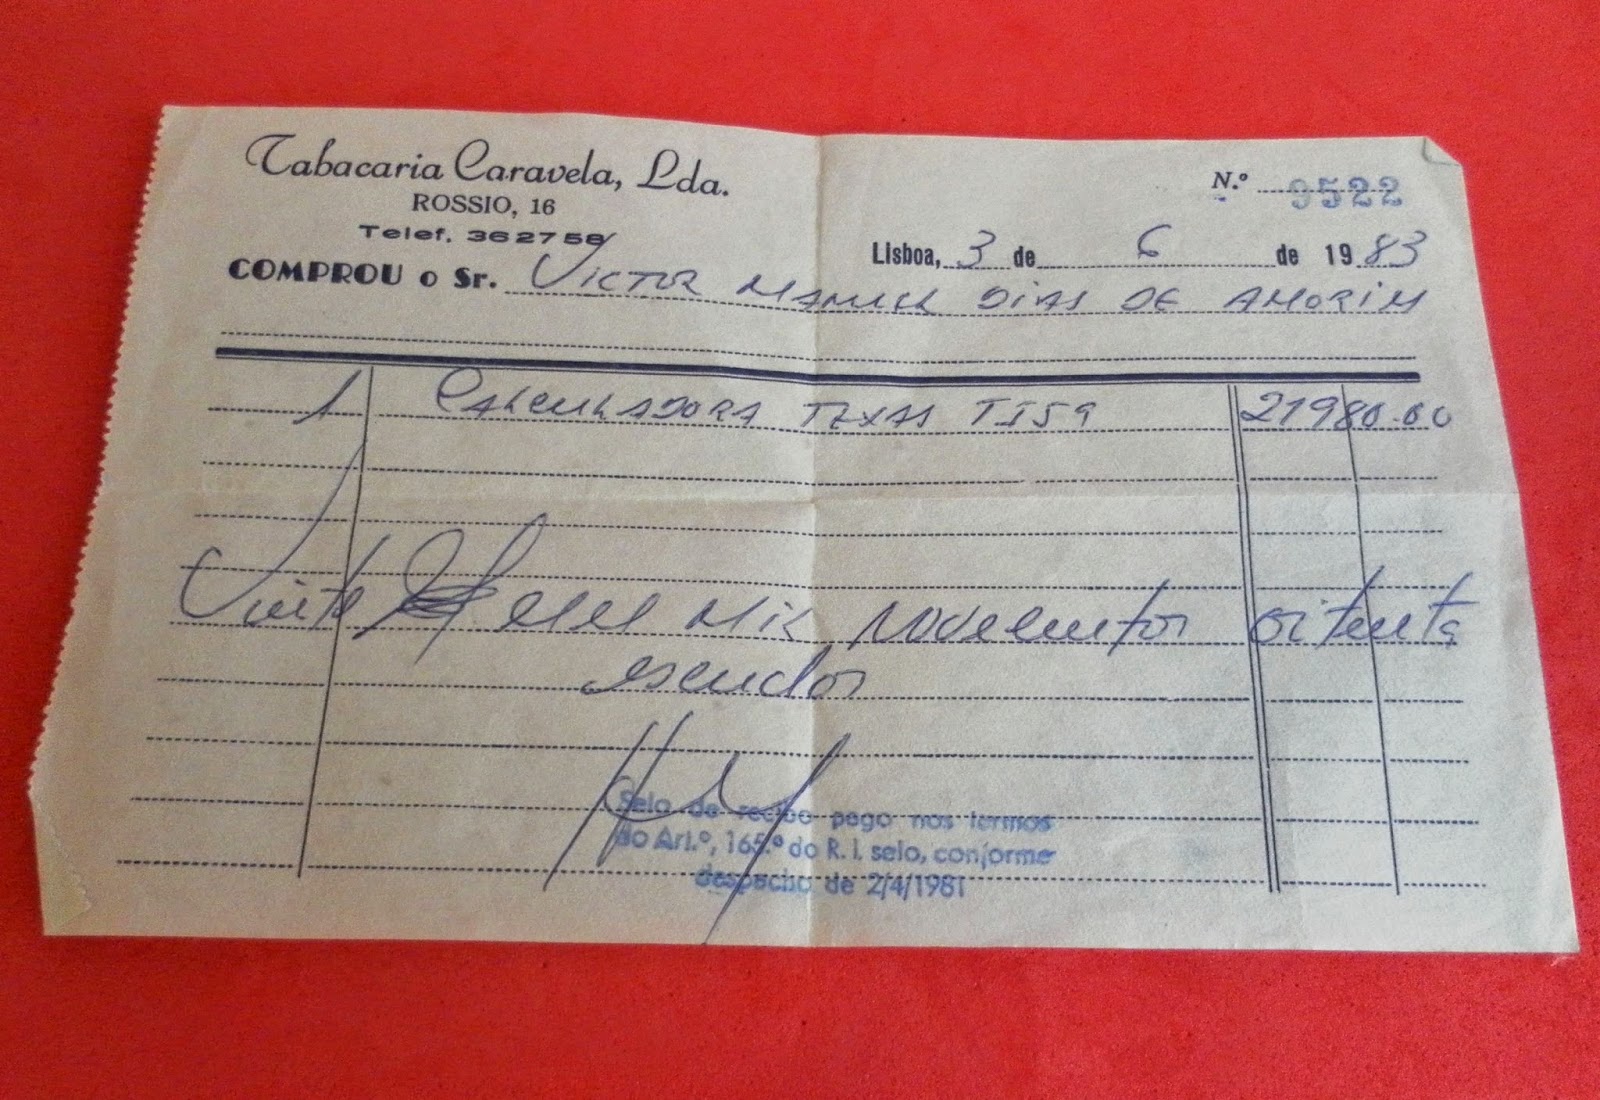 Tabacaria Caravela, Lda.
ROSSIO, 16
Telef. 362758
N.º 9522
Lisboa, 3 de 6 de 1983
COMPROU o Sr. VICTOR MANUEL DIAS DE AMORIM
1 CALCULADORA TEXAS TI59 21980.00
Vinte e um mil novecentos oitenta
escudos
Selo de recibo pago nos termos
do Art.º, 165.º do R. I. selo, conforme
despacho de 2/4/1981